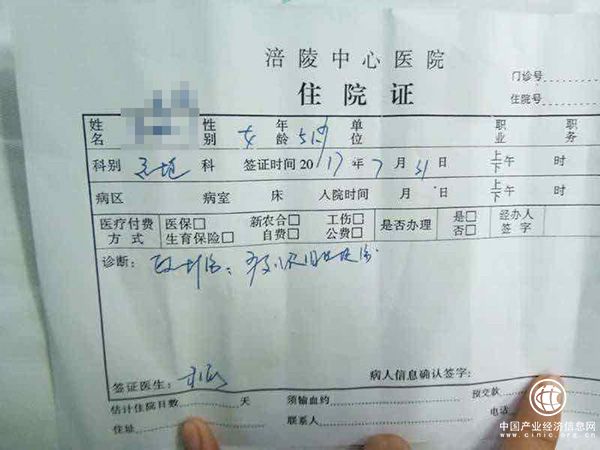 涪陵中心医院
门诊号
住院证
住院号
姓名 性别 女 年龄 51岁 单位 职业 职务
科别 科 签证时间 2017年7月31日 上下午 时
病区 病室 床 入院时间 月 日 上下午 时
医疗付费方式 医保□ 新农合□ 工伤□ 是否办理 是□ 经办人签字
生育保险□ 自费□ 公费□ 否□
诊断：
签证医生： 病人信息确认签字：
估计住院日数 天 须输血约 预交款
住址 联系人 电话
中国产业经济信息网
www.cinic.org.cn